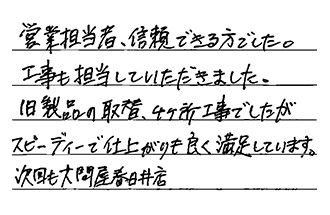 営業担当者、信頼できる方でした。
工事も担当していただきました。
旧製品の取替、4ヶ所工事でしたが
スピーディーで仕上がりも良く満足しています。
次回も大問屋春日井店